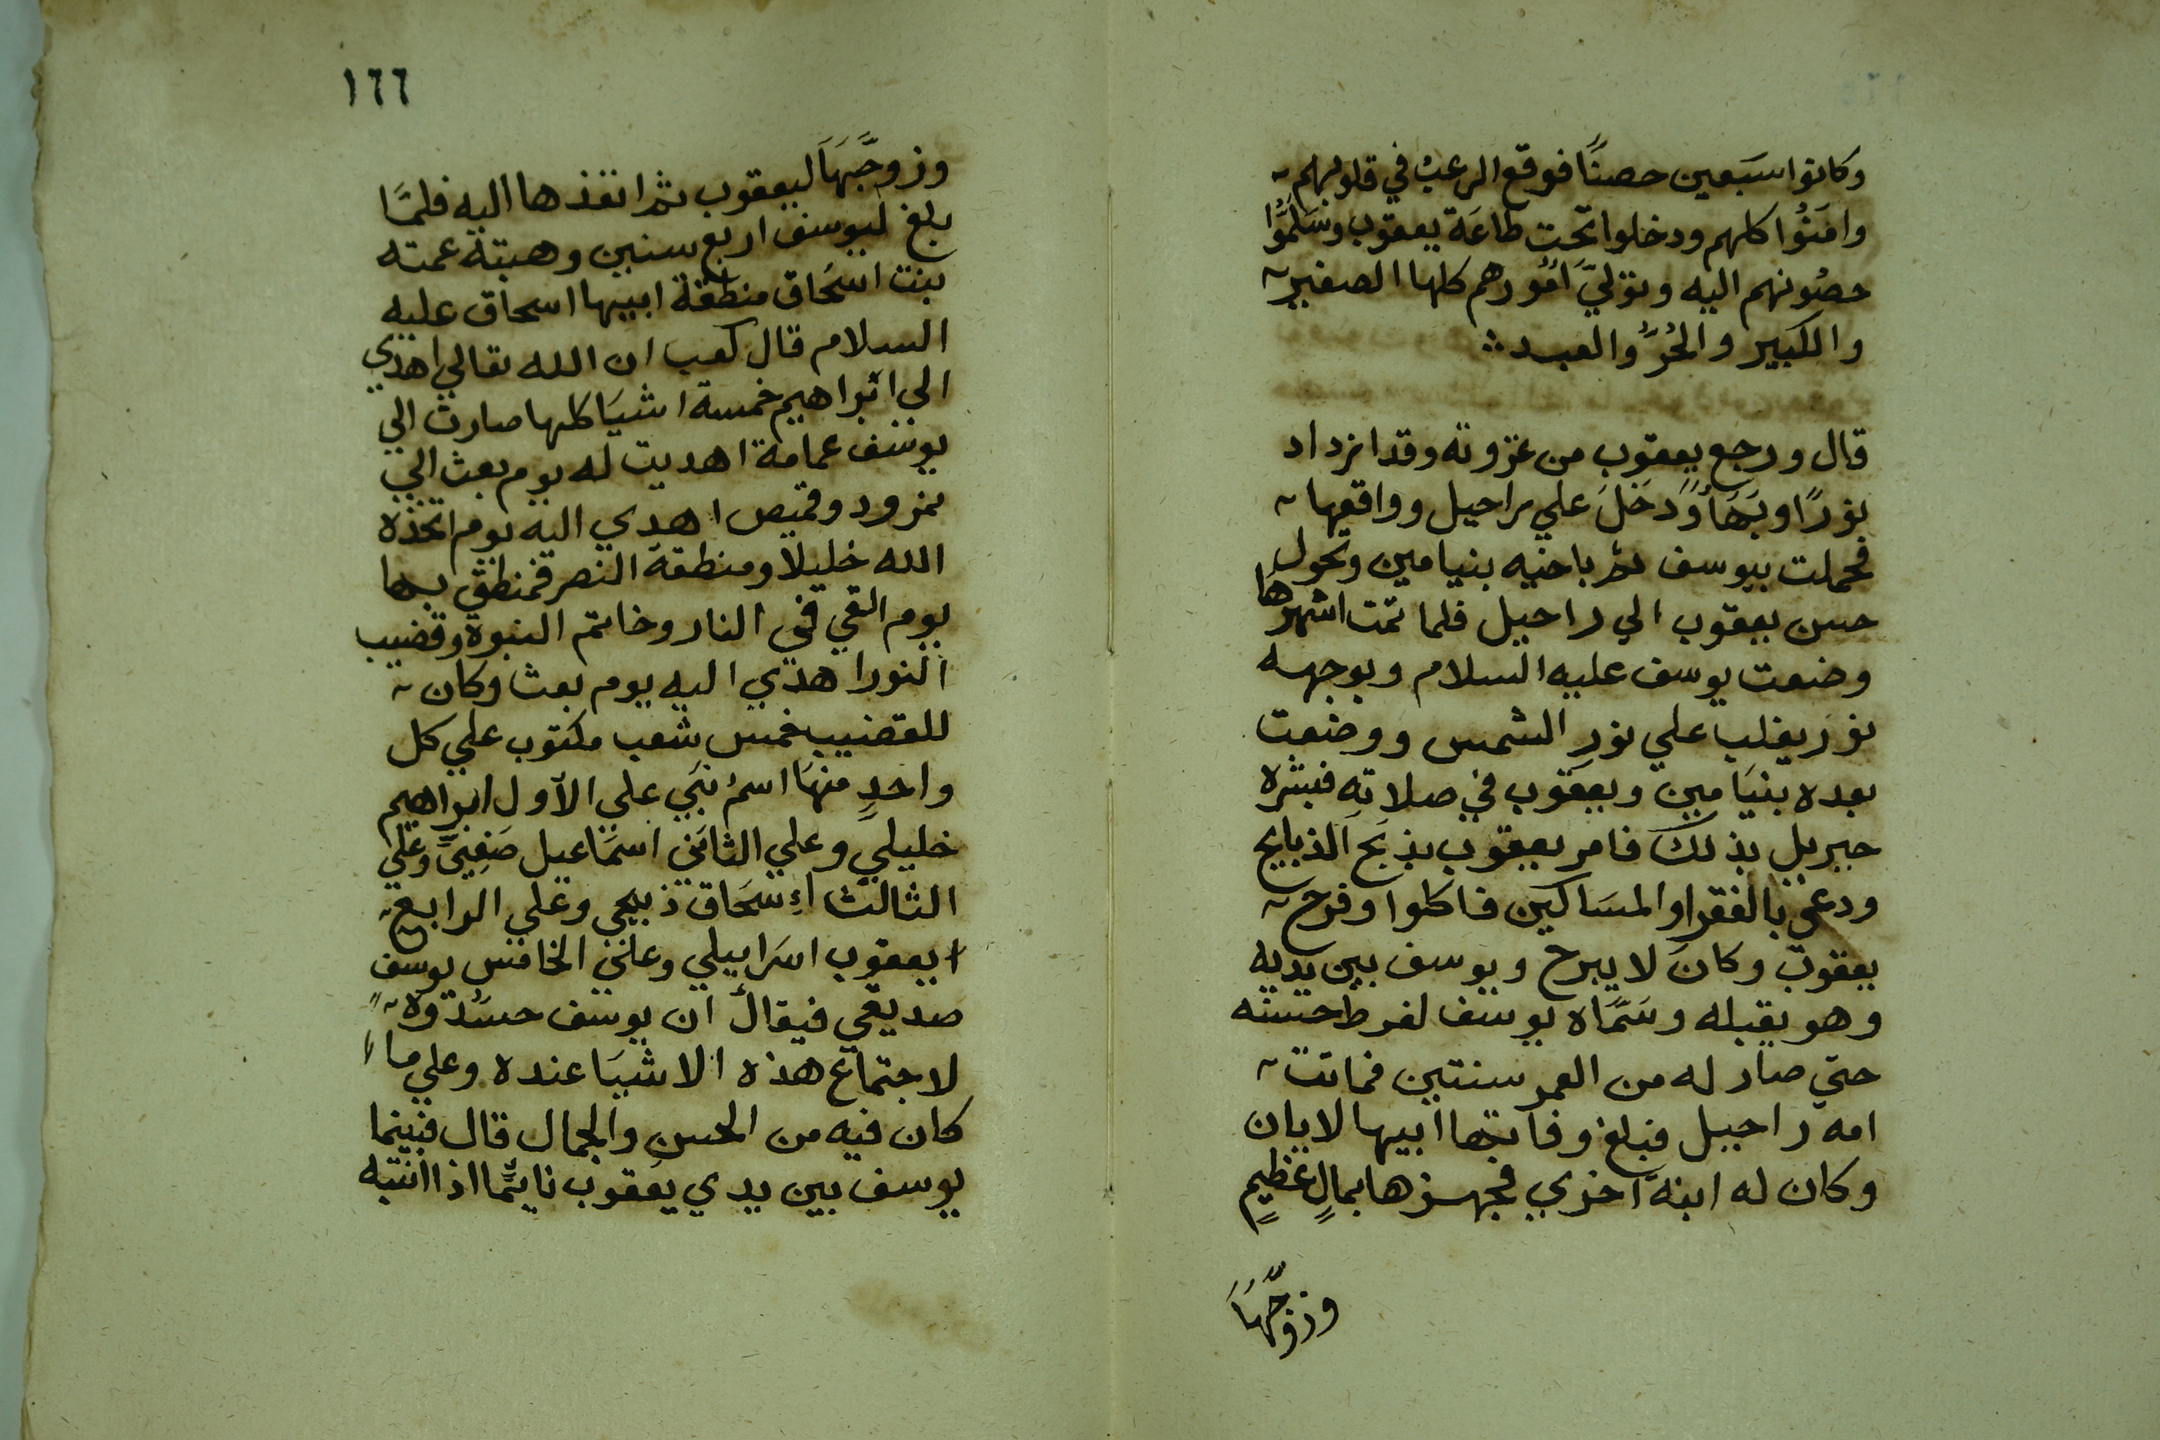 وكانوا سَبعين حصنًا فوقع الرعبُ في قلوبهم
وامَنُوا كلهم ودخلوا تحت طاعَة يعقوب وسَلمَّوُا
حصُونهم اليه وتولي امُورهم كلها الصغير
والكبير والحُرُّ والعبد
قال ورجع يعقوب من غزوته وقد ازداد
نورًا وبَهَاءً ودَخَلَ علي راحيل وواقعها
فحملت بيوسف ثم باخيه بنيامين وتحول
حسن يعقوب الي راحيل فلما تمت اشهرها
وضعت يوسف عليه السلام وبوجهه
نور يغلب علي نورِ الشمس ووضعت
بعده بنيَامين ويعقوب في صلاتهِ فبشره
جبريل بذلك فامر يعقوب بذبَح الذبايح
ودعي بالفقرا والمسَاكين فاكلوا وفرح
يعقوب وكانَ لا يبرح ويوسف بين يديه
وهو يقبله وسَمَّاه يوسف لفرط حسنه
حتي صار له من العمر سنتين فماتت
امه راحيل فبلغ وفاتها ابيها لابان
وكان له ابنةً اخري فجهزها بمالٍ عظيمٍ
وزوَّجَهَا
١٦٦
وزوجَّهَا ليعقوب ثم انفذها اليه فلمَّا
بلغ ليوسف اربع سنين وهبته عمته
بنت اسَحَاق منطقة ابيها اسحاق عليه
السلام قال كعب ان الله تعالي اهدي
الي ابراهيم خمسة اشيَا كلها صارت الي
يوسف عمامة اهديت له يوم بعث الي
نمرود وقميص اهدي اليه يوم اتخذه
الله خليلا ومنطقة النصر فمنطق بها
يوم القي في النار وخاتم النبوة وقضيب
النور اهدي اليه يوم بعث وكان
للقضيب خمس شعب مكتوب علي كل
واحدٍ منهَا اسمُ نبَي علي الأول ابراهيم
خليلي وعلي الثاني اسمَاعيل صَفِيَّ وعلي
الثالث اءِسحَاق ذبيحي وعلي الرابع
يعقوب اسرَاييلي وعلي الخامس يوسف
صديقي فيقال ان يوسف حسَدُوه
لاجتماع هذه الاشيَا عنده وعلي ما
كان فيه من الحسن والجمال قال فبينما
يوسف بين يدي يعقوب نايمًّا اذا انتبه